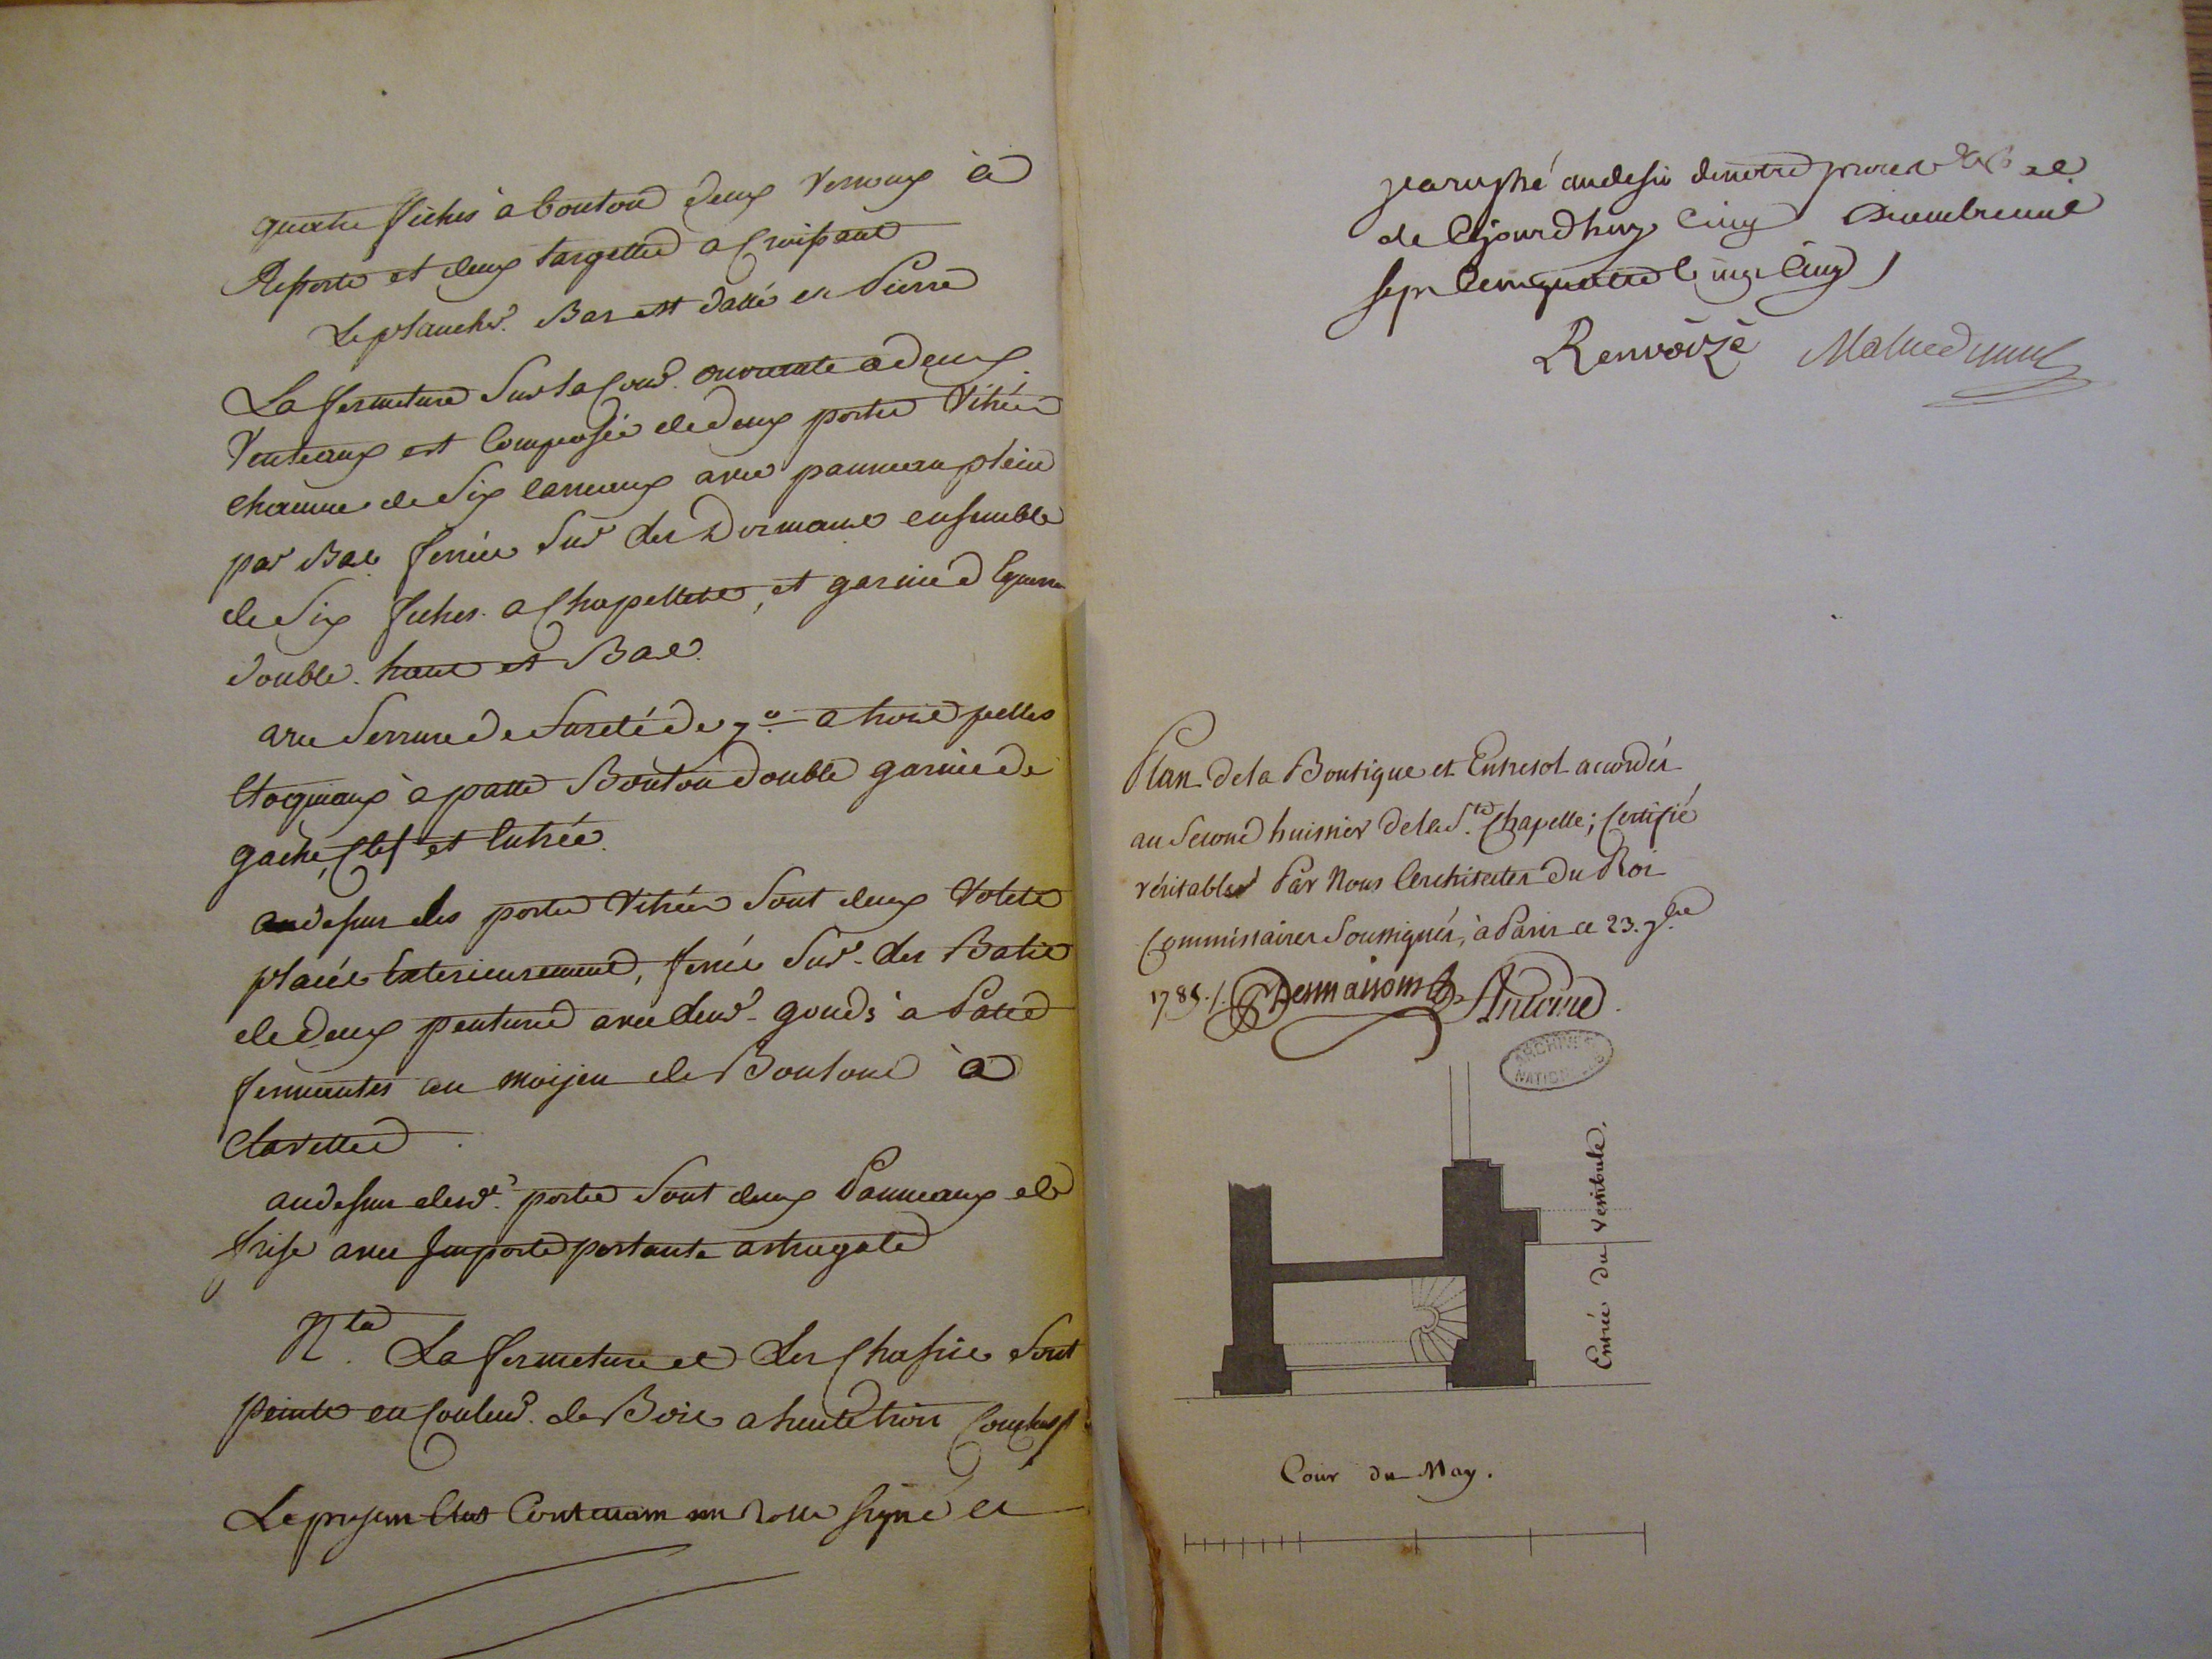 quatre fiches à boutons deux verroux à
Ressorts et deux targettes a Croissant
Le plancher Bas est dallé en Pierre
La fermeture Sur la Cour ouvrante a deux
Venteaux est Composée de deux portes Vitrées
chacune de Six carreaux avec panneau plein
par Bas ferrées Sur des Dormans ensemble
de Six fiches a Chapellets, et garnies d'Equerres
double haut et Bas.
avec Serrure de Sureté de 7° a trois pelles
Etoquiaux à patte Bouton double garnie de
gache, Clef et Entrée.
audessus des portes Vitrées Sont deux Volets
placés Exterieurement, ferrés Sur des Batis
de deux pentures avec leur gonds à Pattes
fermantes au moijen de Boutons à
Clavettes
audessus desd. portes Sont deux Panneaux de
frise avec Imposte portante astragale
Nta. La fermeture et Les Chassis Sont
peints en Couleur de Bois a huile trois Couches
Le present Etat Contenant un Rolle signé et
paraphé au desir de notre procès
de Cejourdhuy Cinq Decembre mil
sept Cent quatre Vingt Cinq
Renvoizé
Plan de la Boutique et Entresol accordés
au Second huissier de la Ste Chapelle; Certifié
véritable Par Nous Architectes du Roi
Commissaires Soussignés, à Paris ce 23. 9bre
1785./. Desmaisons Antoine
ARCHIVES
NATIONALES
Entrée du Vestibule.
Cour du May.